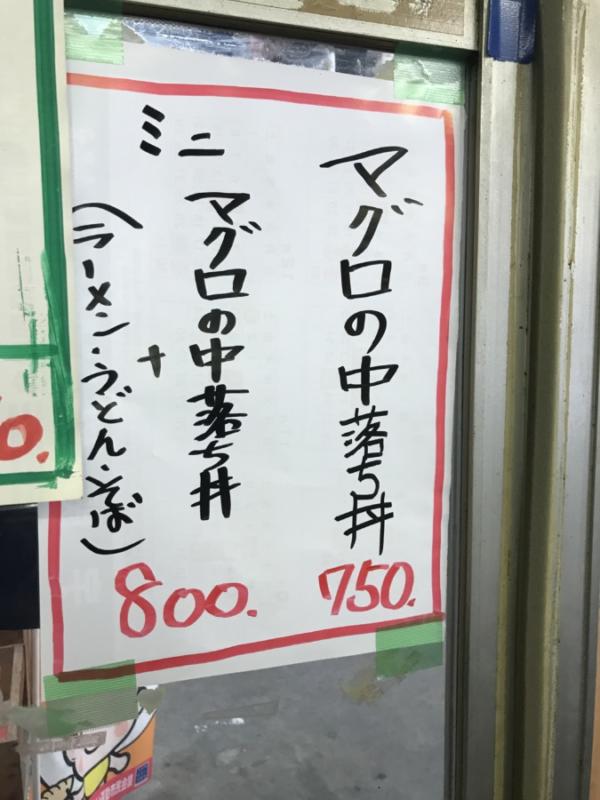 マグロの中落ち丼
750.
ミニ
マグロの中落ち丼
+
(ラーメン・うどん・そば)
800.
0.